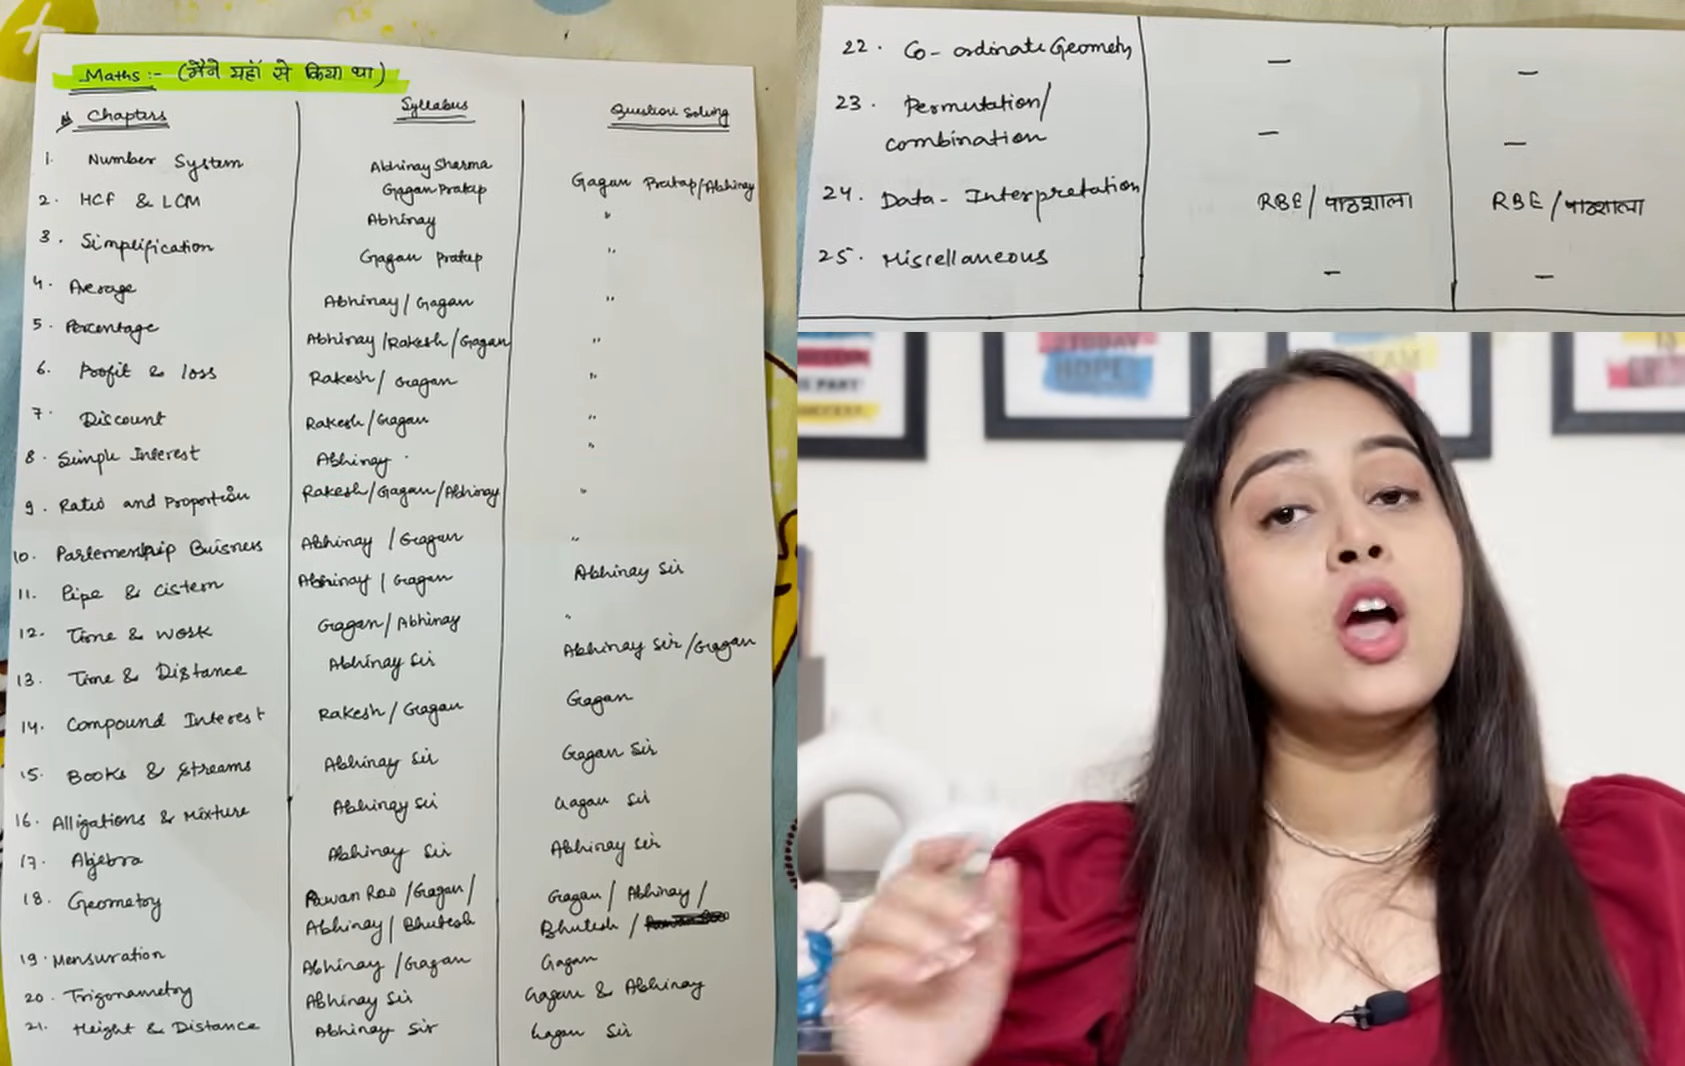 Maths :- (मैंने यहाँ से किया था)
Chapters Syllabus Question Solving
1. Number System Abhinay Sharma
Gagan Pratap Gagan Pratap/Abhinay
2. HCF & LCM Abhinay "
3. Simplification Gagan Pratap "
4. Average Abhinay/Gagan "
5. Percentage Abhinay/Rakesh/Gagan "
6. Profit & loss Rakesh/Gagan "
7. Discount Rakesh/Gagan "
8. Simple Interest Abhinay "
9. Ratio and Proportion Rakesh/Gagan/Abhinay "
10. Buisness Abhinay/Gagan "
11. Pipe & Cistern Abhinay/Gagan Abhinay Sir
12. Time & Work Gagan/Abhinay "
13. Time & Distance Abhinay Sir Abhinay Sir/Gagan
14. Compound Interest Rakesh/Gagan Gagan
15. Books & Streams Abhinay Sir Gagan Sir
16. Alligations & Mixture Abhinay Sir Gagan Sir
17. Algebra Abhinay Sir Abhinay Sir
18. Geometry Pawan Rao/Gagan/ Gagan/Abhinay/
Abhinay/Bhutesh Bhutesh/
19. Mensuration Abhinay/Gagan Gagan
20. Trigonametry Abhinay Sir Gagan & Abhinay
21. Height & Distance Abhinay Sir Gagan Sir
22. Co-ordinate Geometry - -
23. Permutation/
combination - -
24. Data-Interpretation RBE/पाठशाला RBE/पाठशाला
25. Miscellaneous - -
TODAY
HOPE
PART